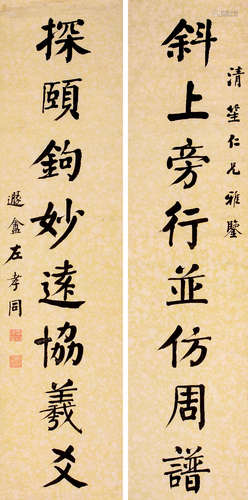 清笙仁兄雅鑒
斜上旁行並仿周譜
探賾鉤妙遠協羲爻
遯盦左孝同